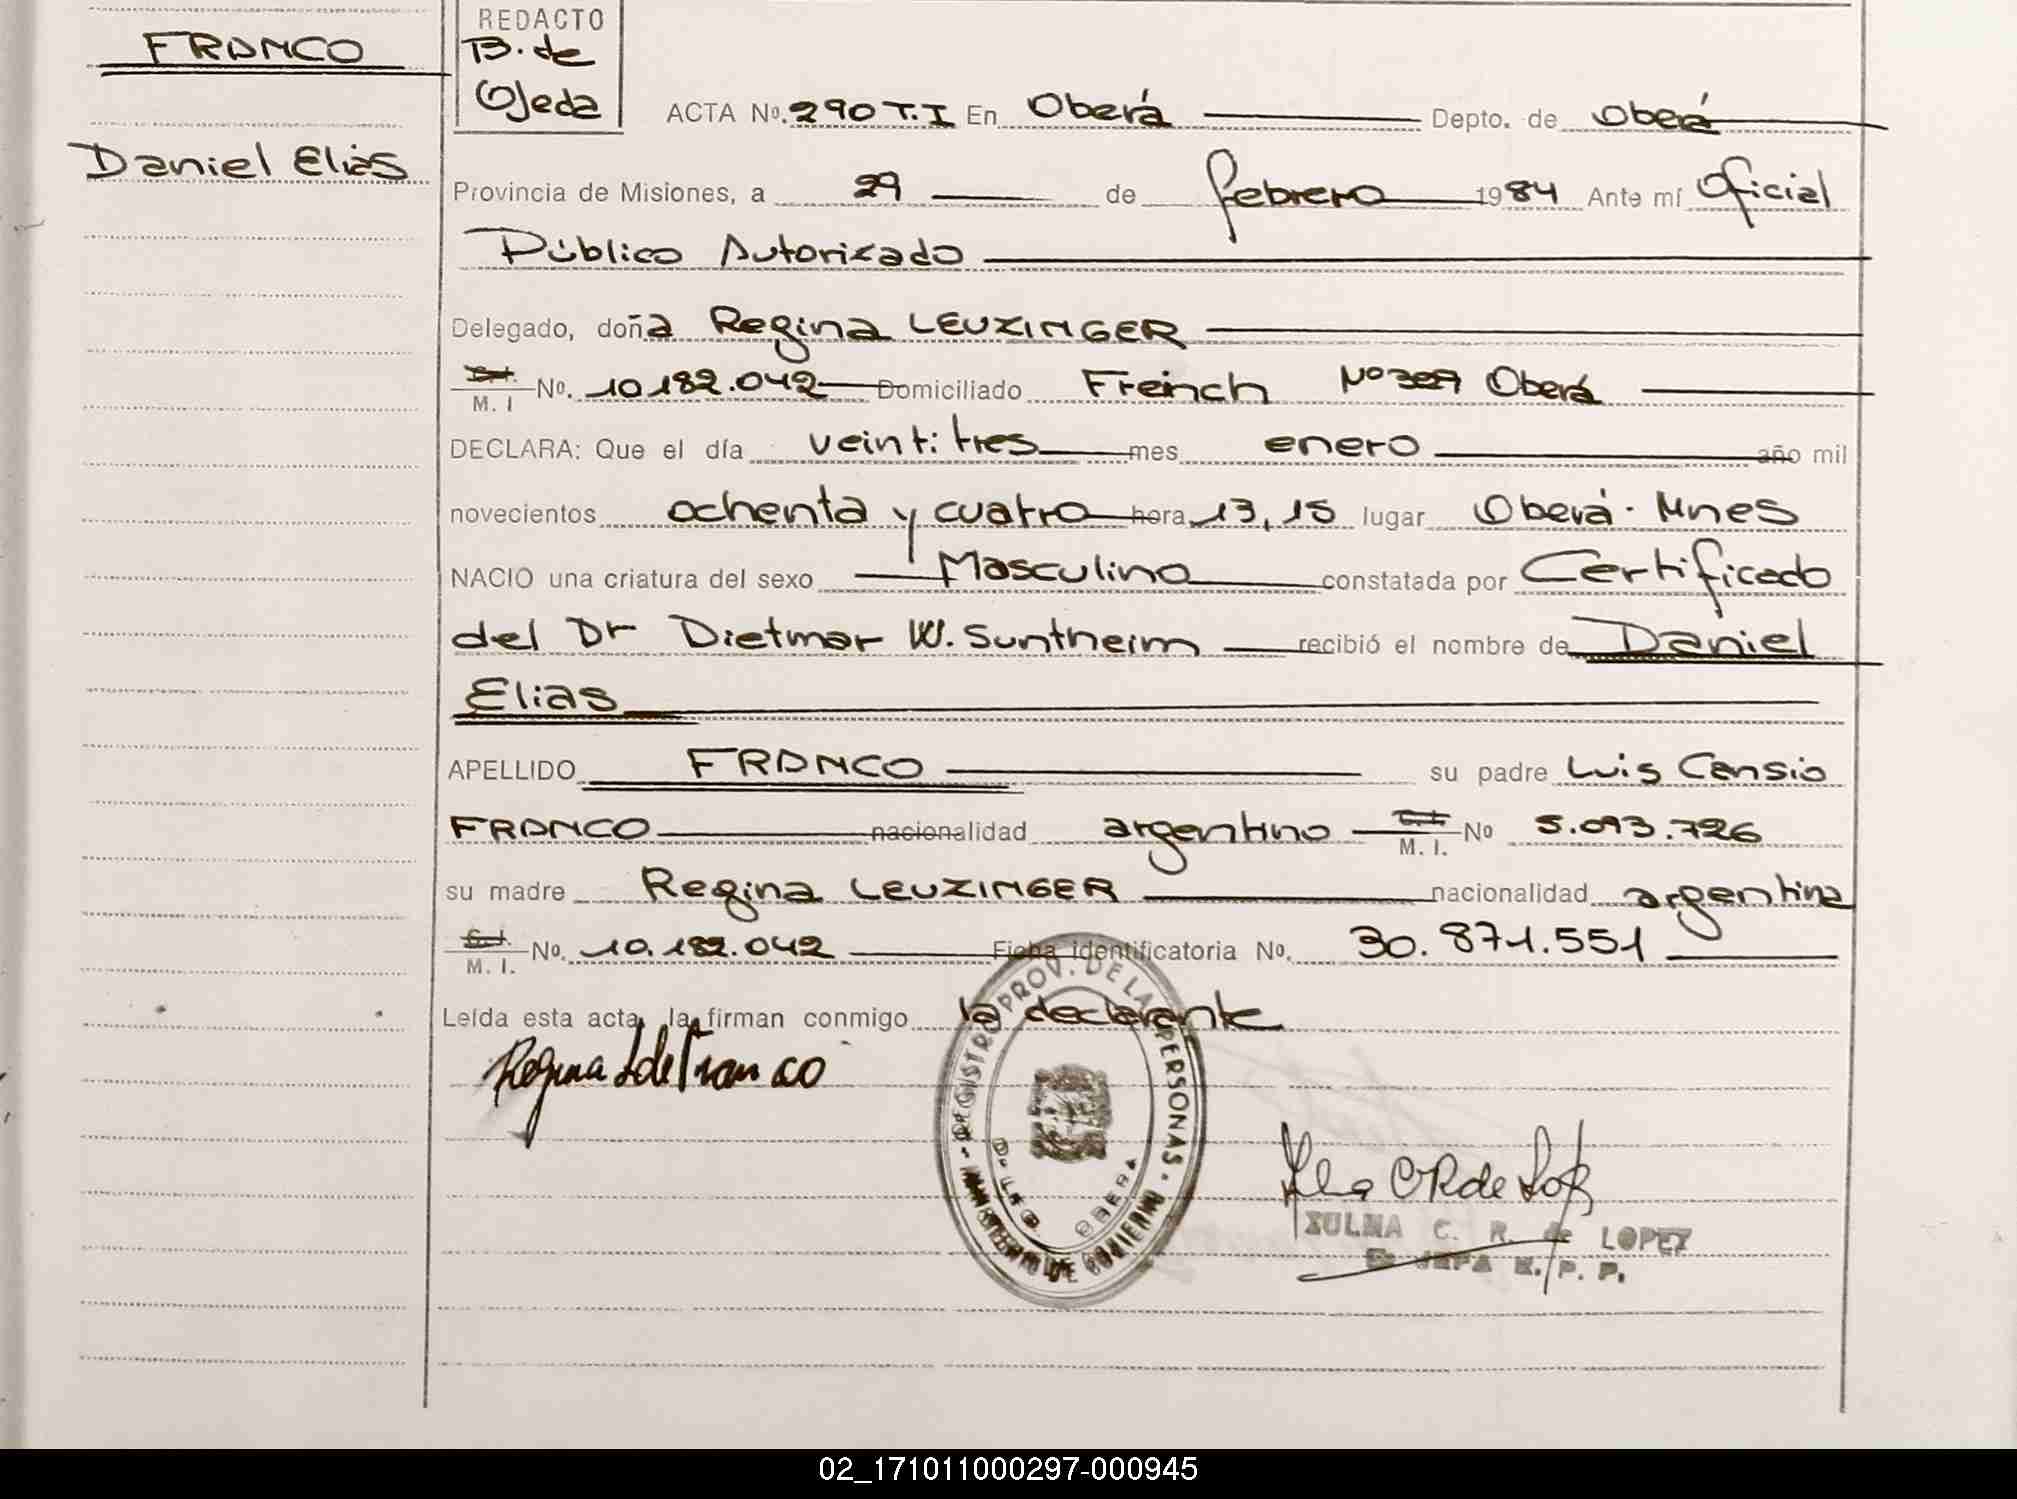 FRANCO
Daniel Elias
REDACTO
B. de
Ojeda
ACTA Nº. 290 T.I En Oberá Depto. de Oberá
Provincia de Misiones, a 29 de febrero 1984 Ante mí Oficial
Público Autorizado
Delegado, doña Regina LEUZINGER
C.I. M. I Nº. 10.182.042 Domiciliado Freinch Nº Oberá
DECLARA: Que el día veintitres mes enero año mil
novecientos ochenta y cuatro hora 13,15 lugar Oberá - Mnes
NACIO una criatura del sexo Masculino constatada por Certificado
del Dr Dietmar W. Suntheim recibió el nombre de Daniel
Elias
APELLIDO FRANCO su padre Luis Cansio
FRANCO nacionalidad argentino C.I. M. I. Nº 5.093.726
su madre Regina LEUZINGER nacionalidad argentina
C.I. M. I. Nº. 10.182.042 Ficha identificatoria Nº. 30.871.551
Leída esta acta, la firman conmigo la declarante
Regina L de Franco
REGISTRO PROV. DE LAS PERSONAS
MINISTERIO DE GOBIERNO
OBERA
ZULMA C. R. de LOPEZ
JEFA R. P. P.
02_171011000297-000945